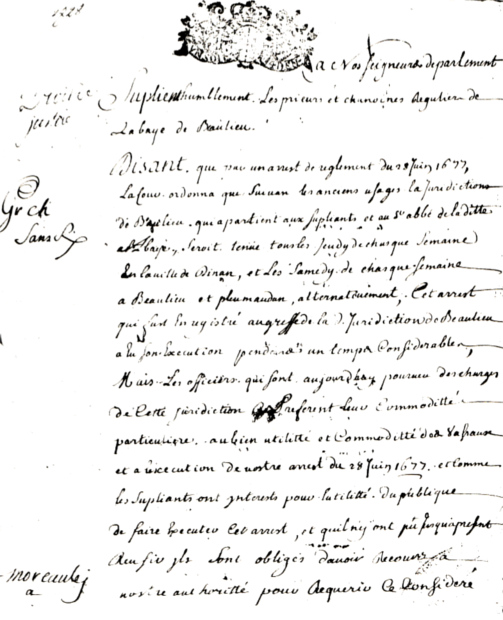 a Nos seigneurs de parlement
Suplient humblement. Les prieur et chanoines Reguliers de
Labaye de Beaulieu.
Disant. que par un arrest de reglement du 28 Juin 1677,
La Cour ordonna que suivan les anciens usages la Juridiction
de Beaulieu. qui apartient aux supliants et au Sr abbé de la ditte
abbaye, seroit tenue tous les Jeudy de chasque semaine
En la ville de Dinan, et Les Samedy de chasque semaine
a Beaulieu et pleumaudan, alternativement, Cet arrest
qui fust Enregistré au greffe de la d. Juridiction de Beaulieu
a Eu son Execution pendant un temps Considerable,
Mais Les officiers qui sont aujourdhuy pourveu des charges
de Cette Juridiction Preferent Leur Commoditté
particuliere. au bien utillité et Commoditté des Vassaux
et a Lexecution de vostre arrest du 28 Juin 1677. et Comme
les Supliants ont Interests pour lutilitté du publique
de faire Executer Cet arrest, et quil n'y ont pu Jusqu'apresent
Reusir ils sont obligés d'avoir Recours a
nostre authoritté pour Requerir Ce Consideré